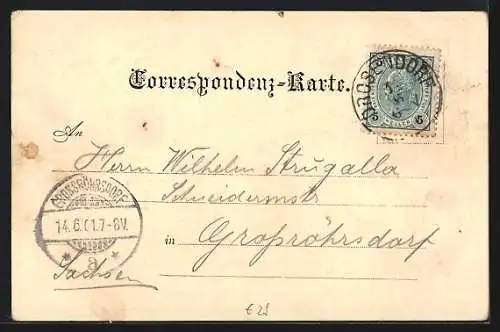 Correspondenz-Karte.
An
Herrn Wilhelm Strugalla
Schneidermstr
in Großröhrsdorf
Sachsen
GROSSRÖHRSDORF
14.6.01.7-8V.
* a *
6
HELLER
€25